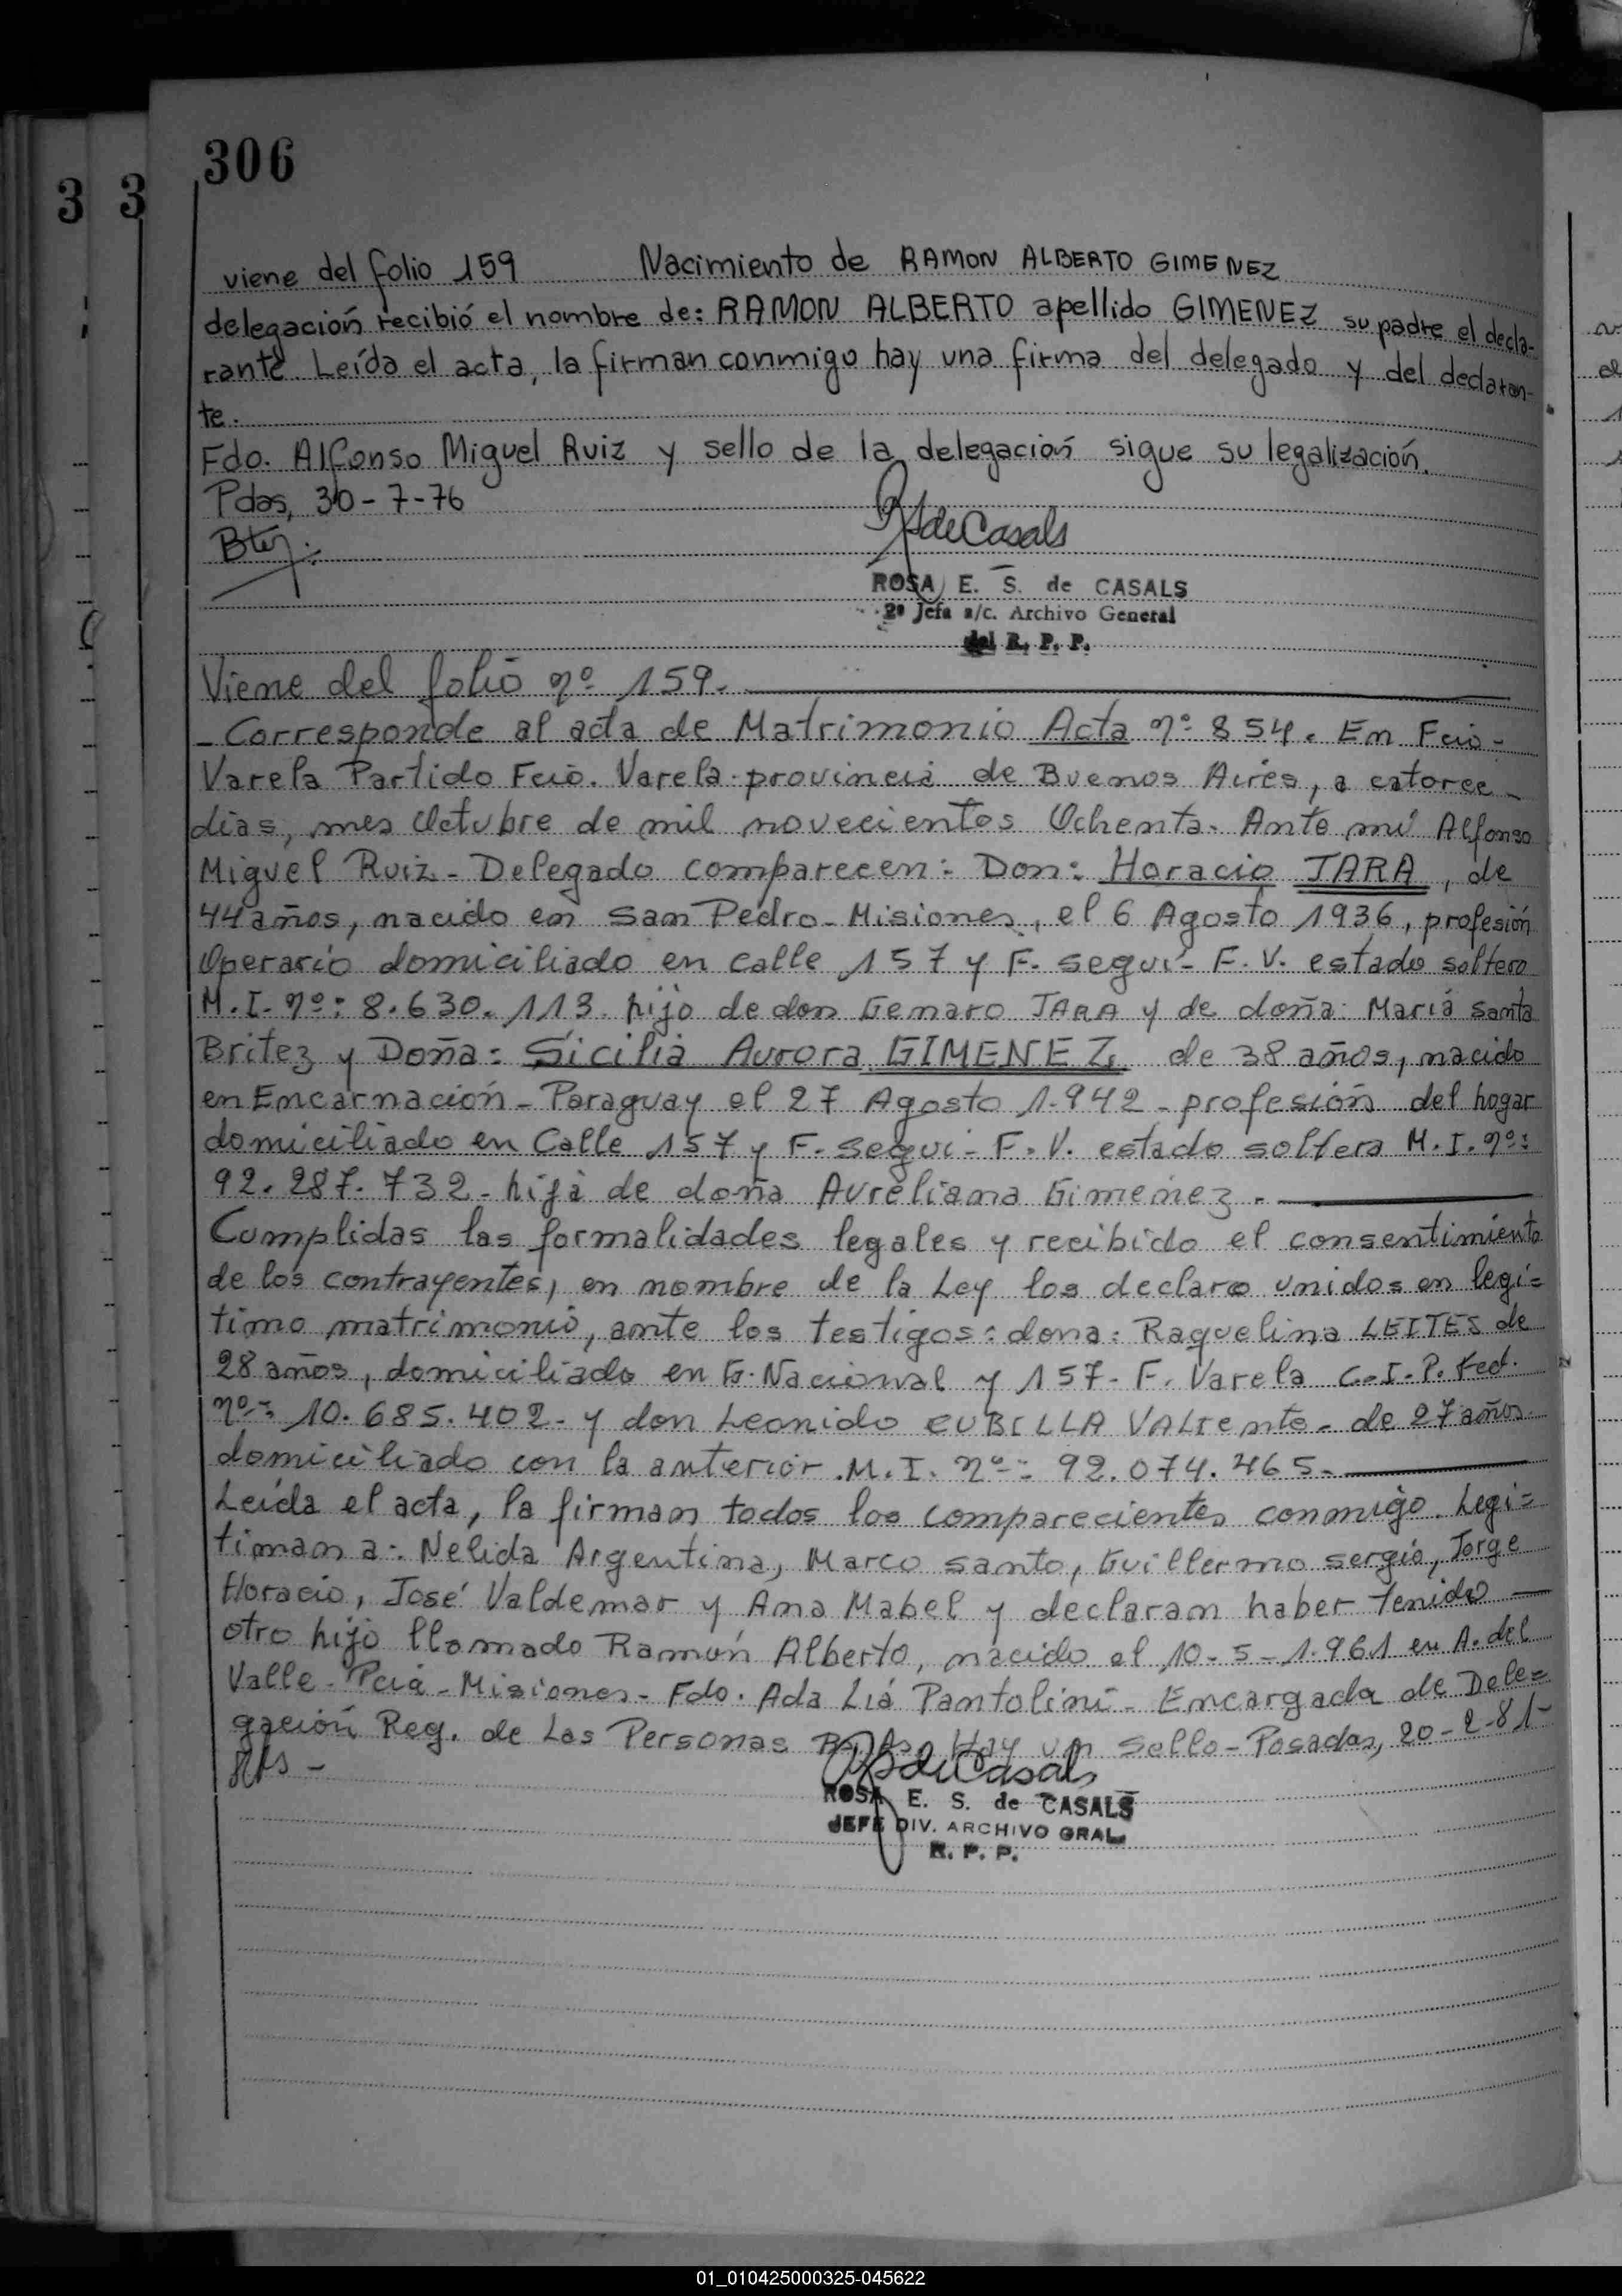 306
3 3
viene del folio 159 Nacimiento de RAMON ALBERTO GIMENEZ
delegación recibió el nombre de: RAMON ALBERTO apellido GIMENEZ su padre el decla-
rante. Leída el acta, la firman conmigo hay una firma del delegado y del declaran-
te.
Fdo. Alfonso Miguel Ruiz y sello de la delegación sigue su legalización.
Pdas, 30-7-76
de Casals
ROSA E. S. de CASALS
2º Jefa a/c. Archivo General
del R. P. P.
Viene del folio nº 159.
- Corresponde al acta de Matrimonio Acta nº 854. En Fcio-
Varela Partido Fcio. Varela provincia de Buenos Aires, a catorce-
dias, mes Octubre de mil novecientos Ochenta. Ante mi Alfonso
Miguel Ruiz - Delegado comparecen: Don: Horacio JARA, de
44 años, nacido en San Pedro - Misiones, el 6 Agosto 1936, profesión
Operario domiciliado en calle 157 y F. Segui - F. V. estado soltero
M.I. nº: 8.630.113. hijo de don Genaro JARA y de doña: Maria Santa
Britez y Doña: Sicilia Aurora GIMENEZ, de 38 años, nacido
en Encarnación - Paraguay el 27 Agosto 1.942 - profesión del hogar
domiciliado en Calle 157 y F. Segui - F. V. estado soltera M.I. nº:
92.287.732 - hija de doña Aureliana Gimenez. -
Cumplidas las formalidades legales y recibido el consentimiento
de los contrayentes, en nombre de la Ley los declaro unidos en legi=
timo matrimonio, ante los testigos: dona: Raquelina LEITES de
28 años, domiciliado en G. Nacional y 157 - F. Varela C.I.P. Fed.
nº: 10.685.402 - y don Leonido CUBILLA VALIente - de 27 años
domiciliado con la anterior M.I. nº: 92.074.465. -
Leída el acta, la firman todos los comparecientes conmigo. Legi=
timan a: Nelida Argentina, Marco Santo, Guillermo Sergio, Jorge
Horacio, José Valdemar y Ana Mabel y declaran haber tenido -
otro hijo llamado Ramón Alberto, nacido el 10-5-1.961 en A. del
Valle - Pcia - Misiones - Fdo. Ada Lia Pantolini - Encargada de Dele=
gación Reg. de Las Personas Hay un Sello - Posadas, 20-2-81-
de Casals
ROSA E. S. de CASALS
JEFE DIV. ARCHIVO GRAL
R. P. P.
01_010425000325-045622